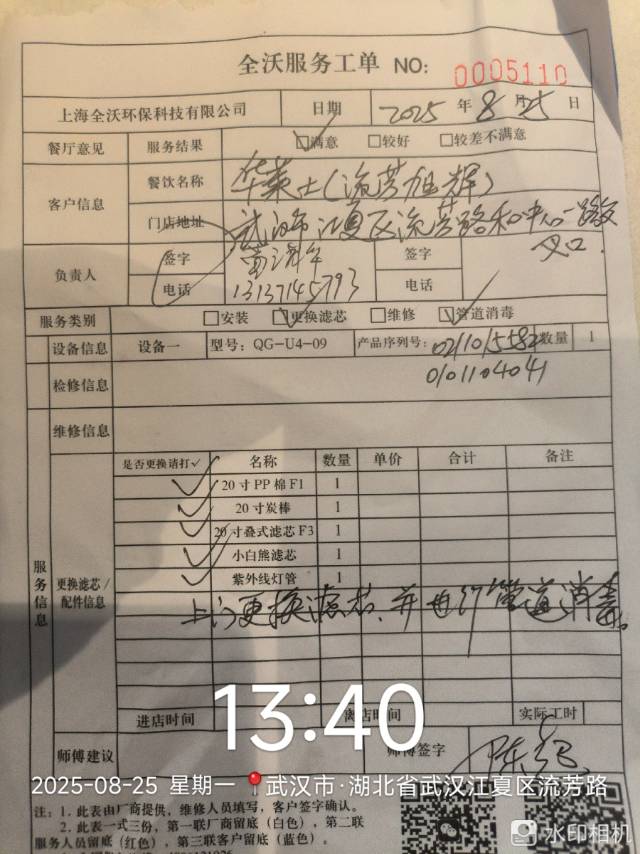 全沃服务工单 NO: 0005110
上海全沃环保科技有限公司 日期 2025 年 8 月 25 日
餐厅意见 服务结果 ☑满意 □较好 □较差不满意
客户信息 餐饮名称 华莱士(流芳旭辉)
门店地址 武汉市江夏区流芳路和中心一路交
叉口
负责人 签字 签字
电话 13137145793 电话
服务类别 □安装 ☑更换滤芯 □维修 ☑管道消毒
设备信息 设备一 型号: QG-U4-09 产品序列号: 数量 1
0101104041
检修信息
维修信息
服务信息
更换滤芯/配件信息
是否更换请打✓ 名称 数量 单价 合计 备注
✓ 20寸PP棉F1 1
✓ 20寸炭棒 1
✓ 20寸叠式滤芯F3 1
✓ 小白熊滤芯 1
✓ 紫外线灯管 1
上门更换滤芯、并进行管道消毒。
进店时间 离店时间 实际工时
13:40
师傅建议 师傅签字
2025-08-25 星期一 武汉市·湖北省武汉江夏区流芳路
注: 1. 此表由厂商提供, 维修人员填写, 客户签字确认。
2. 此表一式三份, 第一联厂商留底(白色)、第二联
服务人员留底(红色)、第三联客户留底(蓝色)。
水印相机